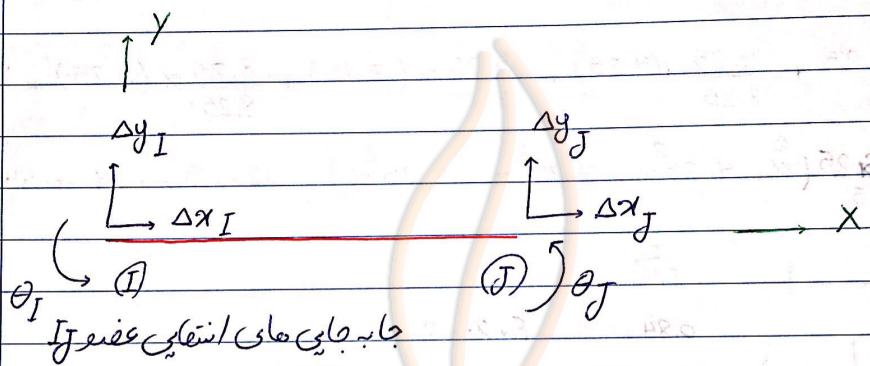 Y
Δy_I Δy_J
Δx_I Δx_J X
θ_I I J θ_J
جابه جایی های انتهایی عضو IJ